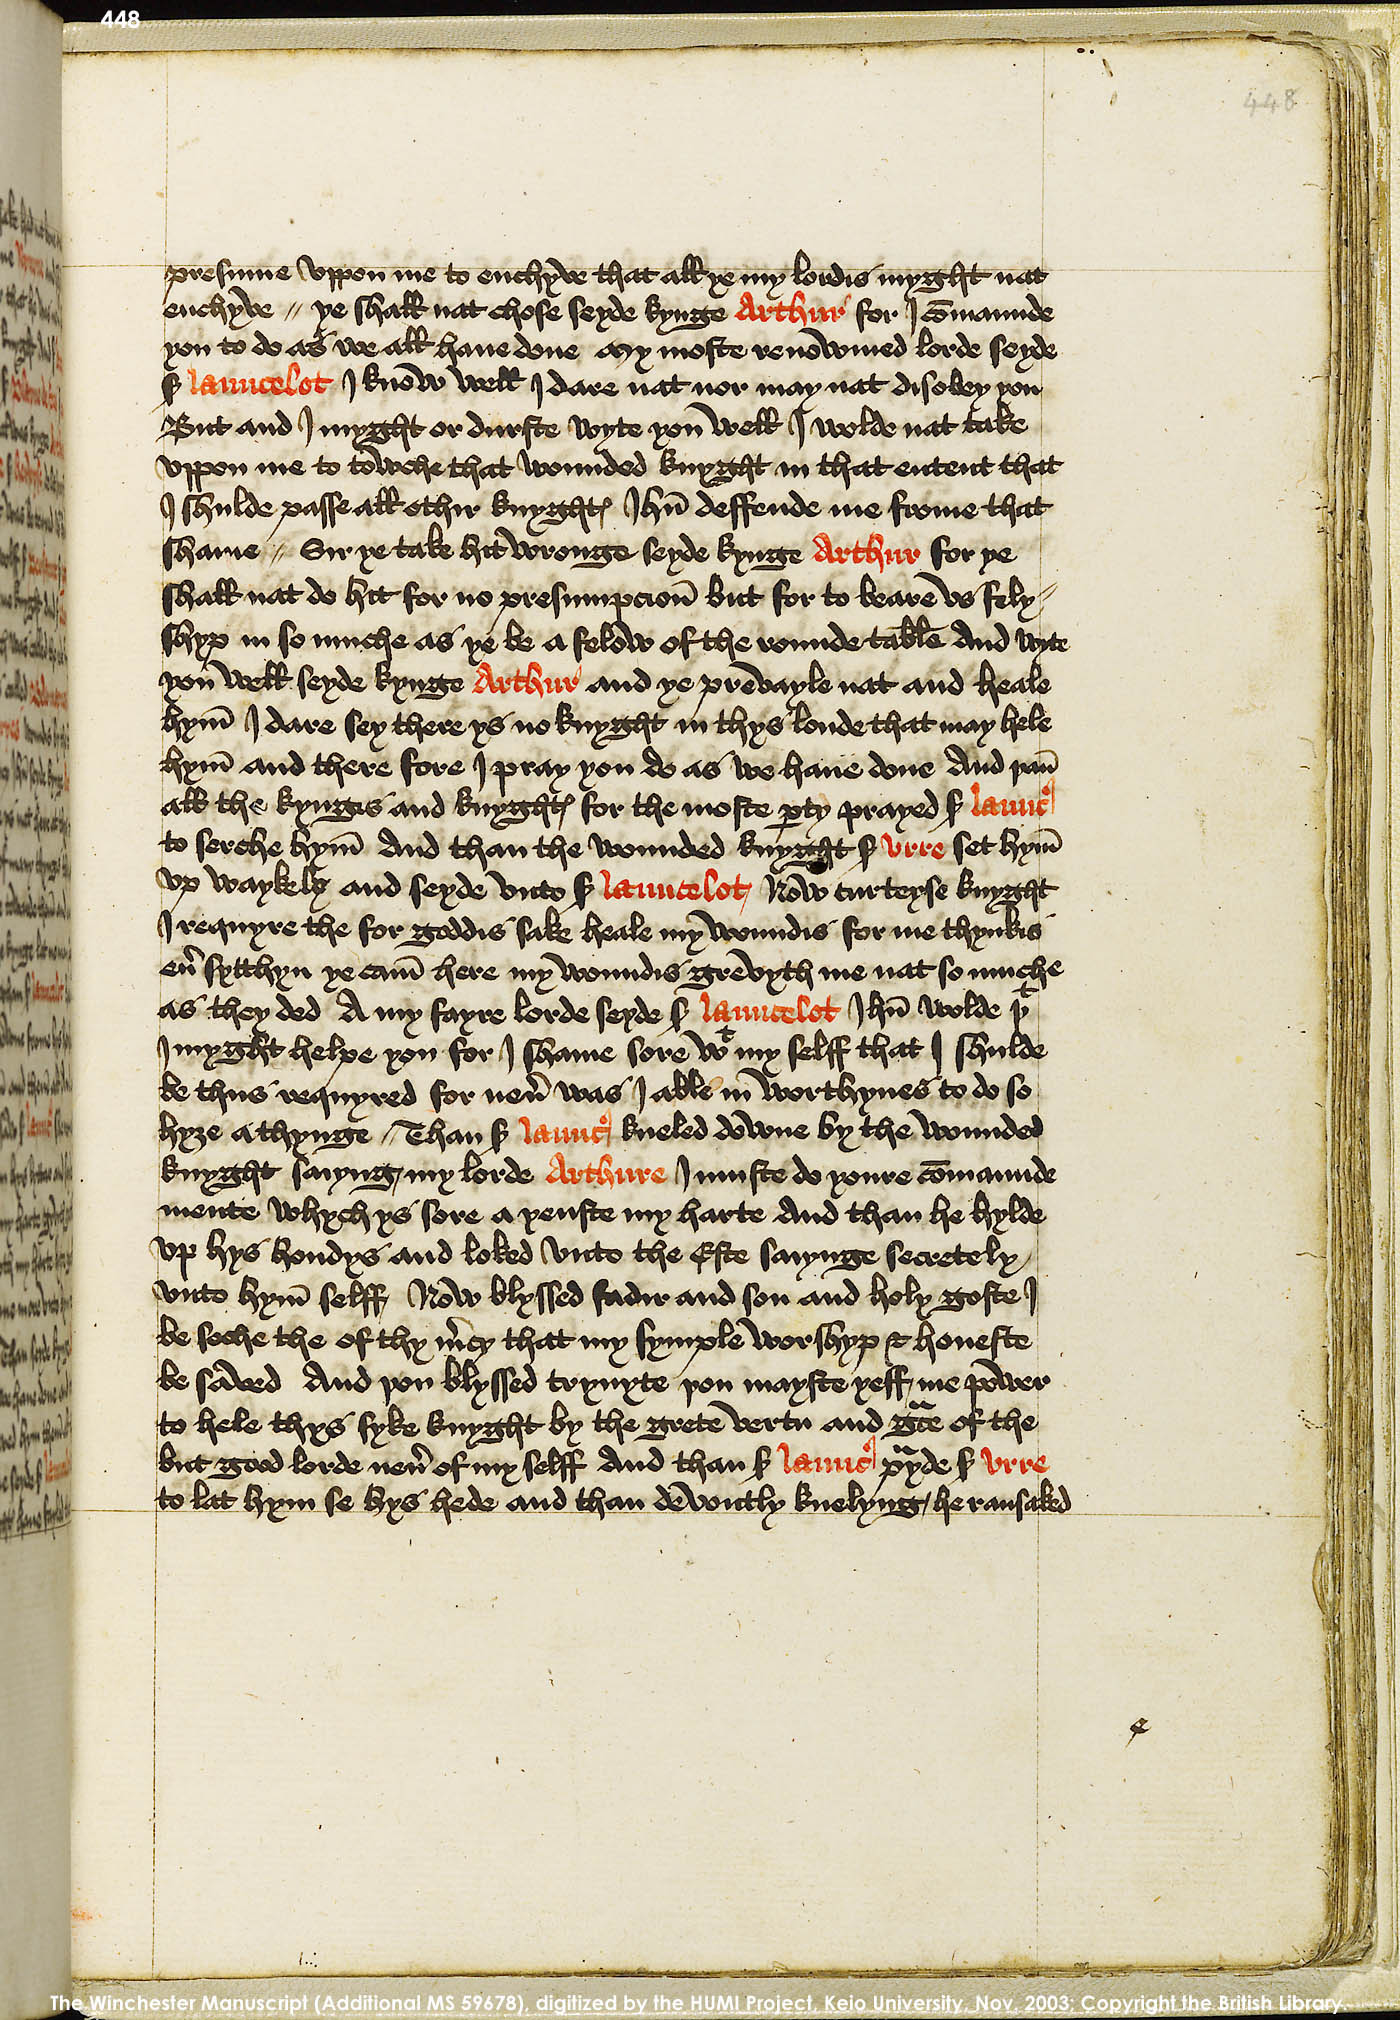 448
448
presume vppon me to enchyve that all ye my lordis myght nat
enchyve // ye shall nat chose seyde kynge Arthur for I cōmaunde
you to do as we all haue done My moste renowmed lorde seyde
sꝭ launcelot I know well I dare nat nor may nat disobey you
But and I myght or durste wyte you well I wolde nat take
vppon me to towche that wounded knyght in that entent that
I shulde passe all othir knyghtꝭ Ihū deffende me frome that
shame // Sir ye take hit wronge seyde kynge Arthur for ye
shall nat do hit for no presumpcioū but for to beare vs fely/
shyp in so muche as ye be a felow of the rounde table And wyte
you well seyde kynge Arthur and ye prevayle nat and heale
hym̄ I dare sey there ys no knyght in thys londe that may hele
hym̄ and there fore I pray you do as we haue done And þan̄
all the kyngis and knyghtꝭ for the moste ꝑty prayed sꝭ launcꝰ
to serche hym̄ And than the wounded knyght sꝭ vrre set hym̄
vp waykely and seyde vnto sꝭ launcelot / Now curteyse knyght
I requyre the for goddis sake heale my woundis for me thynkis
eu̾ sytthyn ye cam̄ here my woundis grevyth me nat so muche
as they ded A my fayre lorde seyde sꝭ launcelot Ihū wolde þᵗ
I myght helpe you for I shame sore wᵗ my selff that I shulde
be thus requyred for neu̾ was I able in worthynes to do so
hyȝe a thynge // Than sꝭ launcꝰ kneled downe by the wounded
knyght saiyng / my lorde Arthure I muste do youre cōmaunde
mente whych ys sore a yenste my harte And than he hylde
vp hys hondys and loked vnto the Este saiynge secretely
vnto hym̄ selff / Now blyssed fadir and son and holy goste I
be seche the of thy m̾cy that my symple worshyp & honeste
be saved And þou blyssed trynyte þou mayste yeff / me power
to hele thys syke knyght by the grete vertu and gᵃce of the
but good lorde neu̾ of my selff And than sꝭ launcꝰ pᵃyde sꝭ vrre
to lat hym se hys hede and than devoutly knelyng / he ransaked
The Winchester Manuscript (Additional MS 59678), digitized by the HUMI Project, Keio University, Nov, 2003; Copyright the British Library.